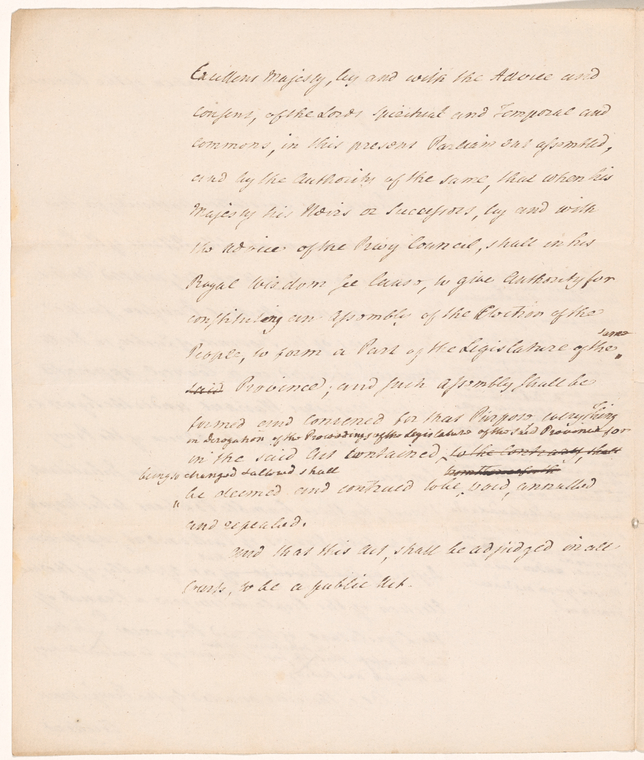 Excellent Majesty, by and with the Advice and
Consent, of the Lords Spiritual and Temporal and
Commons, in this present Parliament assembled,
and by the Authority of the same, that when his
Majesty his Heirs or Successors, by and with
the advice of the Privy Council, shall in his
Royal Wisdom see Cause, to give Authority for
constituting an Assembly of the Election of the
People, to form a Part of the Legislature of the
same
said Province; and such Assembly shall be
formed and convened for that Purpose every Thing
in derogation of the Proceedings of the Legislature of the said Province for
in the said Act contained, to the Contrary, shall
being changed & altered shall
be deemed and contrued to be, void, annulled
and repealed.
and that this Act, shall be adjudged in all
Courts, to be a public Act.